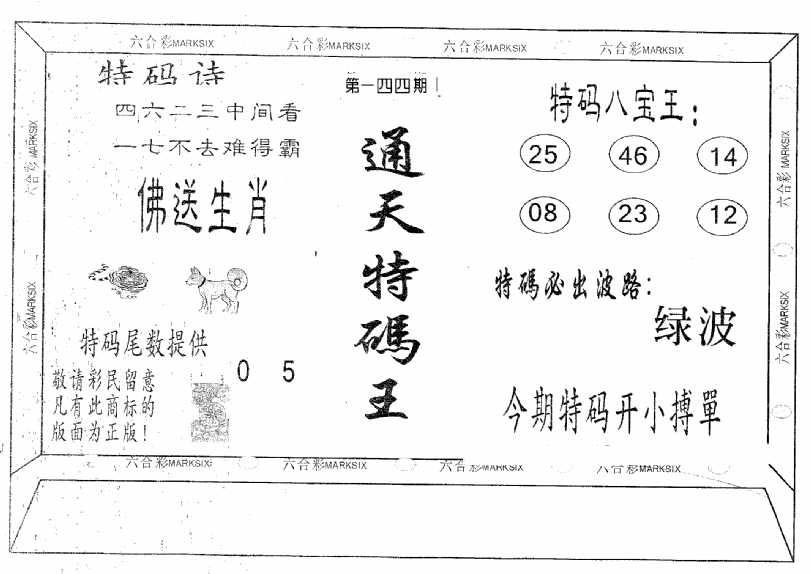 六合彩MARKSIX
六合彩MARKSIX
六合彩MARKSIX
六合彩MARKSIX
特码诗
四六二三中间看
一七不去难得霸
佛送生肖
特码尾数提供
0 5
敬请彩民留意
凡有此商标的
版面为正版！
第一四四期
通天特碼王
特码八宝王：
25 46 14
08 23 12
特碼必出波路：
绿波
今期特码开小搏單
六合彩MARKSIX
六合彩MARKSIX
六合彩MARKSIX
六合彩MARKSIX
六合彩MARKSIX
六合彩MARKSIX
六合彩MARKSIX
六合彩MARKSIX